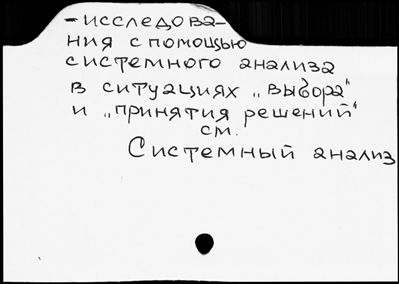 -исследова-
ния с помощью
системного анализа
в ситуациях „выбора"
и „принятия решений"
см.
Системный анализ